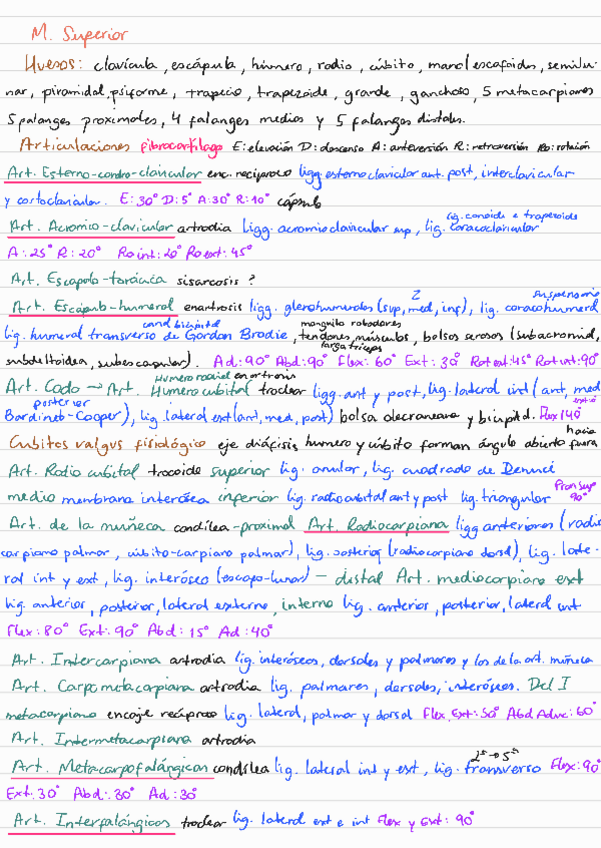 M. Superior
Huesos: clavícula, escápula, húmero, radio, cúbito, mano(escafoides, semilu-
nar, piramidal, psiforme, trapecio, trapezoide, grande, ganchoso, 5 metacarpianos
5 falanges proximales, 4 falanges medios y 5 falanges distales.
Articulaciones fibrocartílago E: elevación D: descenso A: anteversión R: retroversión Ro: rotación
Art. Esterno-condro-clavicular enc. recíproco ligg esternoclavicular ant. post, interclavicular
y costoclavicular. E: 30° D: 5° A: 30° R: 10° cápsula
lig. conoide e trapezoide
Art. Acromio-clavicular artrodia ligg. acromioclavicular sup, lig. coracoclavicular
A: 25° R: 20° Ro int: 20° Ro ext: 45°
Art. Escapulo-torácica sisarcosis?
Z suspensorio
Art. Escápulo-humeral enartrosis ligg. glenohumerales (sup, med, inf), lig. coracohumeral
canal bicipital manguito rotadores
lig. humeral transverso de Gordon Brodie, tendones, músculos, bolsas serosas (subacromial,
larga triceps
subdeltoidea, subescapular). Ad: 90° Abd: 90° Flex: 60° Ext: 30° Rot ext: 45° Rot int: 90°
Humeroradial enartrosis
Art. Codo → Art. Humerocubital troclear ligg. ant y post, lig. lateral int (ant, med
posterior ext: 0
Bardinet-Cooper), lig. lateral ext (ant, med, post) bolsa olecraneana y bicipital. Flex 140°
hacia
Cubitos valgus fisiológico eje diáfisis humero y cúbito forman ángulo abierto fuera
Art. Radio cubital trocoide superior lig. anular, lig. cuadrado de Denucé
Pron Sup
medio membrana interósea inferior lig. radiocubital ant y post lig. triangular 90°
Art. de la muñeca condílea-proximal Art. Radiocarpiana ligg anteriores (radio
carpiano palmar, cúbito-carpiano palmar), lig. posterior (radiocarpiano dorsal), lig. late-
ral int y ext, lig. interóseo (escafo-lunar) – distal Art. mediocarpiano ext
lig. anterior, posterior, lateral externo, interno lig. anterior, posterior, lateral int
Flex: 80° Ext: 90° Abd: 15° Ad: 40°
Art. Intercarpiana artrodia lig. interóseos, dorsales y palmares y los de la art. muñeca
Art. Carpometacarpiana artrodia lig. palmares, dorsales, interóseos. Del I
metacarpiano encaje recíproco lig. lateral, palmar y dorsal Flex, Ext: 50° Abd Aduc: 60°
Art. Intermetacarpiana artrodia
2° → 5°
Art. Metacarpofalángicas condílea lig. lateral int y ext, lig. transverso Flex: 90°
Ext: 30° Abd: 30° Ad: 30°
Art. Interfalángicas troclear lig. lateral ext e int Flex y Ext: 90°